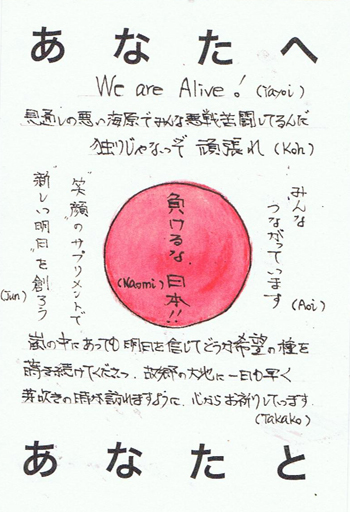 あなたへ
We are Alive! (Yayoi)
見通しの悪い海原でみんな悪戦苦闘してるんだ
独りじゃないぞ 頑張れ (Koh)
みんな
つながっています
(Aoi)
負けるな、日本!!
(Naomi)
"笑顔"のサプリメントで
"新しい明日"を創ろう
(Jun)
嵐の中にあっても明日を信じてどうか希望の種を
蒔き続けてください。故郷の大地に一日も早く
芽吹きの時が訪れますように、心からお祈りしてます。
(Takako)
あなたと